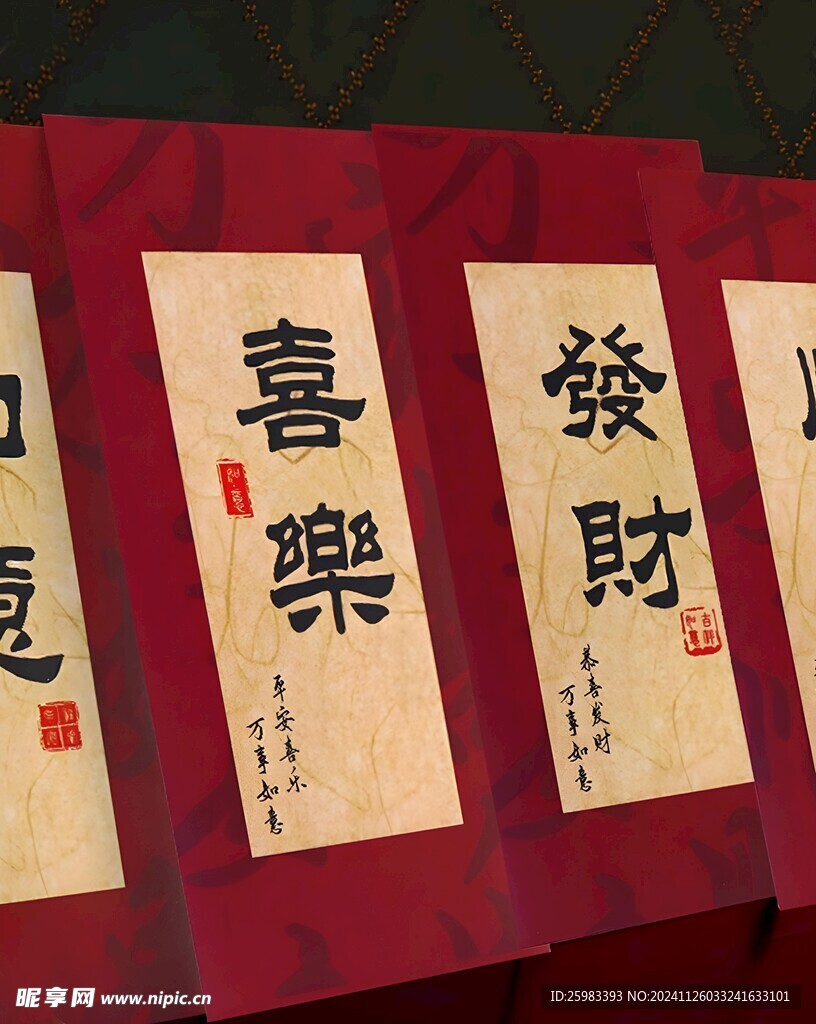 意
喜樂
如意
平安喜乐
万事如意
發財
吉祥
如意
恭喜发财
万事如意
昵享网 www.nipic.cn
ID:25983393 NO:20241126033241633101